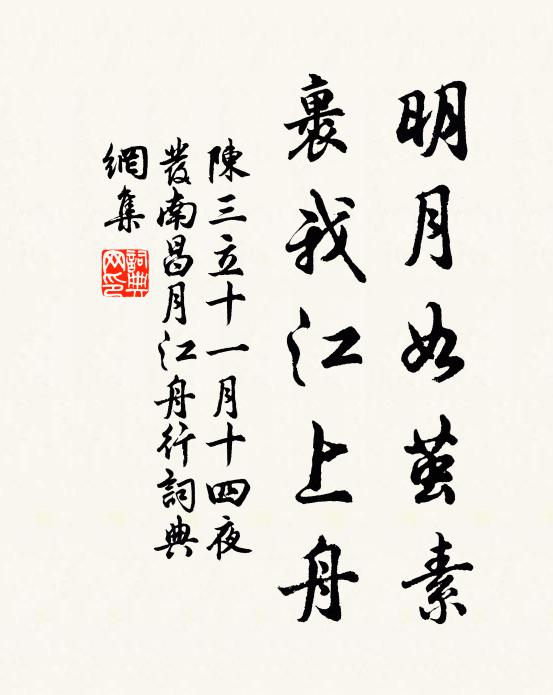 明月如茧素
裹我江上舟
陳三立十一月十四夜
發南昌月江舟行詞典
網集
詞典
网印